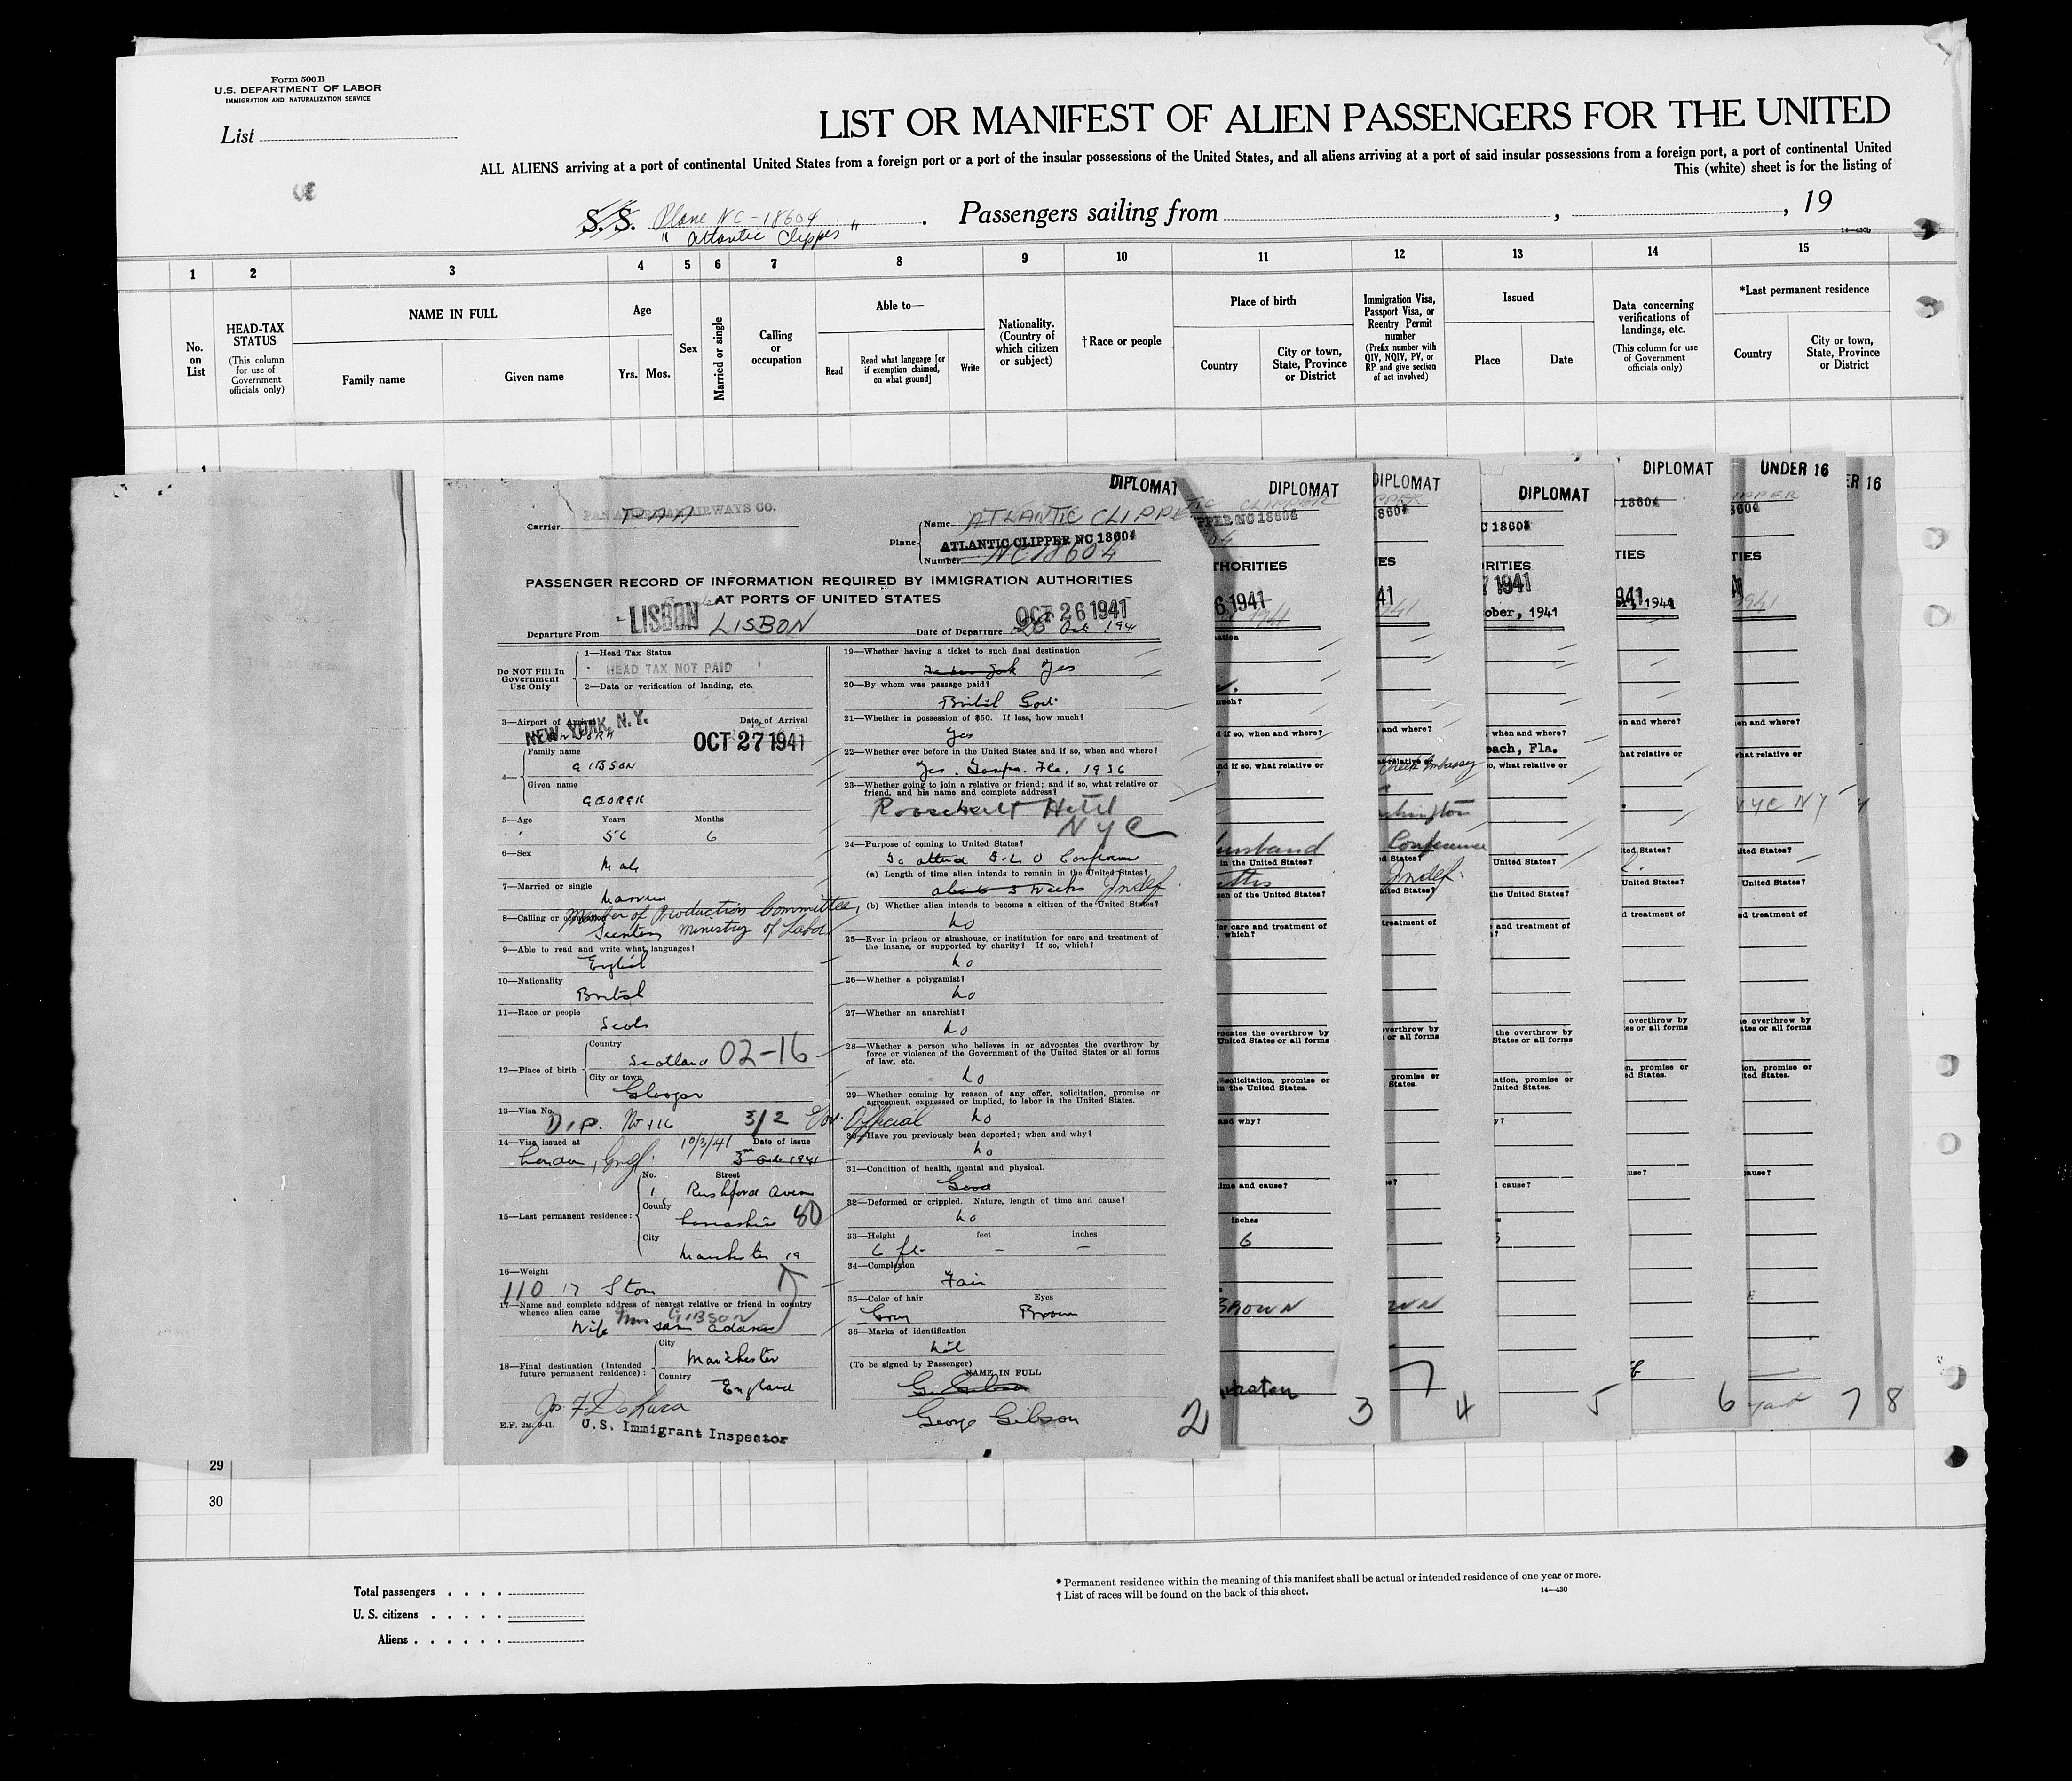 Form 500B
U.S. DEPARTMENT OF LABOR
IMMIGRATION AND NATURALIZATION SERVICE
List
LIST OR MANIFEST OF ALIEN PASSENGERS FOR THE UNITED
ALL ALIENS arriving at a port of continental United States from a foreign port or a port of the insular possessions of the United States, and all aliens arriving at a port of said insular possessions from a foreign port, a port of continental United
This (white) sheet is for the listing of
S.S. Plane NC-18604
"Atlantic Clipper"
Passengers sailing from , , 19
14—430b
1 2 3 4 5 6 7 8 9 10 11 12 13 14 15
No. on List
HEAD-TAX STATUS
(This column for use of Government officials only)
NAME IN FULL
Family name
Given name
Age
Yrs. Mos.
Sex
Married or single
Calling or occupation
Able to—
Read
Read what language [or if exemption claimed, on what ground]
Write
Nationality. (Country of which citizen or subject)
†Race or people
Place of birth
Country
City or town, State, Province or District
Immigration Visa, Passport Visa, or Reentry Permit number
(Prefix number with QIV, NQIV, PV, or RP and give section of act involved)
Issued
Place
Date
Data concerning verifications of landings, etc.
(This column for use of Government officials only)
*Last permanent residence
Country
City or town, State, Province or District
DIPLOMAT
Carrier PAA
PAN AMERICAN AIRWAYS CO.
Plane
Name ATLANTIC CLIPPER
ATLANTIC CLIPPER NC 18604
Number NC 18604
PASSENGER RECORD OF INFORMATION REQUIRED BY IMMIGRATION AUTHORITIES
AT PORTS OF UNITED STATES
Departure From LISBON LISBON
Date of Departure OCT 26 1941
26 Oct 1941
Do NOT Fill In Government Use Only
1—Head Tax Status
HEAD TAX NOT PAID
2—Data or verification of landing, etc.
3—Airport of Arrival
NEW YORK, N.Y.
Date of Arrival
OCT 27 1941
4—
Family name
GIBSON
Given name
GEORGE
5—Age Years Months
56 6
6—Sex
Male
7—Married or single
Married
8—Calling or occupation
Member of Production Committee,
Ministry of Labor
9—Able to read and write what languages?
English
10—Nationality
British
11—Race or people
Scots
12—Place of birth
Country
Scotland 02-16
City or town
Glasgow
13—Visa No.
Dip. No 116 3/2 Gov. Official
14—Visa issued at
London, Engl.
10/3/41 Date of issue
3rd Oct. 1941
15—Last permanent residence:
No. Street
1 Rushford Avenue
County
Lancashire 80
City
Manchester 19
16—Weight
110 17 Stone
17—Name and complete address of nearest relative or friend in country whence alien came
Mrs GIBSON
Wife same address
18—Final destination (Intended future permanent residence):
City
Manchester
Country
England
Jos. F. De Luca
E.F. 2M. 9-41.
U.S. Immigrant Inspector
19—Whether having a ticket to such final destination
Yes
20—By whom was passage paid?
British Govt.
21—Whether in possession of $50. If less, how much?
Yes
22—Whether ever before in the United States and if so, when and where?
Yes. Tampa. Fla. 1936
23—Whether going to join a relative or friend; and if so, what relative or friend, and his name and complete address?
Roosevelt Hotel
NYC
24—Purpose of coming to United States?
To attend I.L.O Conference
(a) Length of time alien intends to remain in the United States?
about 3 weeks Indef.
(b) Whether alien intends to become a citizen of the United States?
No
25—Ever in prison or almshouse, or institution for care and treatment of the insane, or supported by charity? If so, which?
No
26—Whether a polygamist?
No
27—Whether an anarchist?
No
28—Whether a person who believes in or advocates the overthrow by force or violence of the Government of the United States or all forms of law, etc.
No
29—Whether coming by reason of any offer, solicitation, promise or agreement, expressed or implied, to labor in the United States.
No
30—Have you previously been deported; when and why?
No
31—Condition of health, mental and physical.
Good
32—Deformed or crippled. Nature, length of time and cause?
No
33—Height feet inches
6 ft. – –
34—Complexion
Fair
35—Color of hair Eyes
Grey Brown
36—Marks of identification
Nil
(To be signed by Passenger)
NAME IN FULL
G. Gibson
George Gibson
2
DIPLOMAT
TIC CLIPPER
PPER NC 18604
04
THORITIES
6, 1941
1941
nd if so, what relative or
husband
in the United States?
en of the United States?
for care and treatment of
which?
vocates the overthrow by
United States or all forms
solicitation, promise or
in the United States.
and why?
ime and cause?
inches
6
BROWN
3
DIPLOMAT
PPER
18604
IES
41
1941
and where?
Greek Embassy
shington
Conference
d States?
Indef.
ited States?
treatment of
verthrow by
or all forms
promise or
States.
WN
7
4
DIPLOMAT
C 18604
RITIES
7 1941
ober, 1941
when and where?
each, Fla.
so, what relative or
United States?
the United States?
and treatment of
?
the overthrow by
States or all forms
ation, promise or
United States.
y?
cause?
5
DIPLOMAT
18604
TIES
941
, 1941
en and where?
hat relative or
ted States?
United States?
d treatment of
overthrow by
es or all forms
n, promise or
ed States.
use?
6
UNDER 16
IPPER
8604
TIES
1941
en and where?
hat relative or
NYC NY
ited States?
United States?
nd treatment of
e overthrow by
ates or all forms
on, promise or
ited States.
ause?
7
ER 16
8
29
30
Total passengers
U. S. citizens
Aliens
* Permanent residence within the meaning of this manifest shall be actual or intended residence of one year or more.
† List of races will be found on the back of this sheet.
14—430